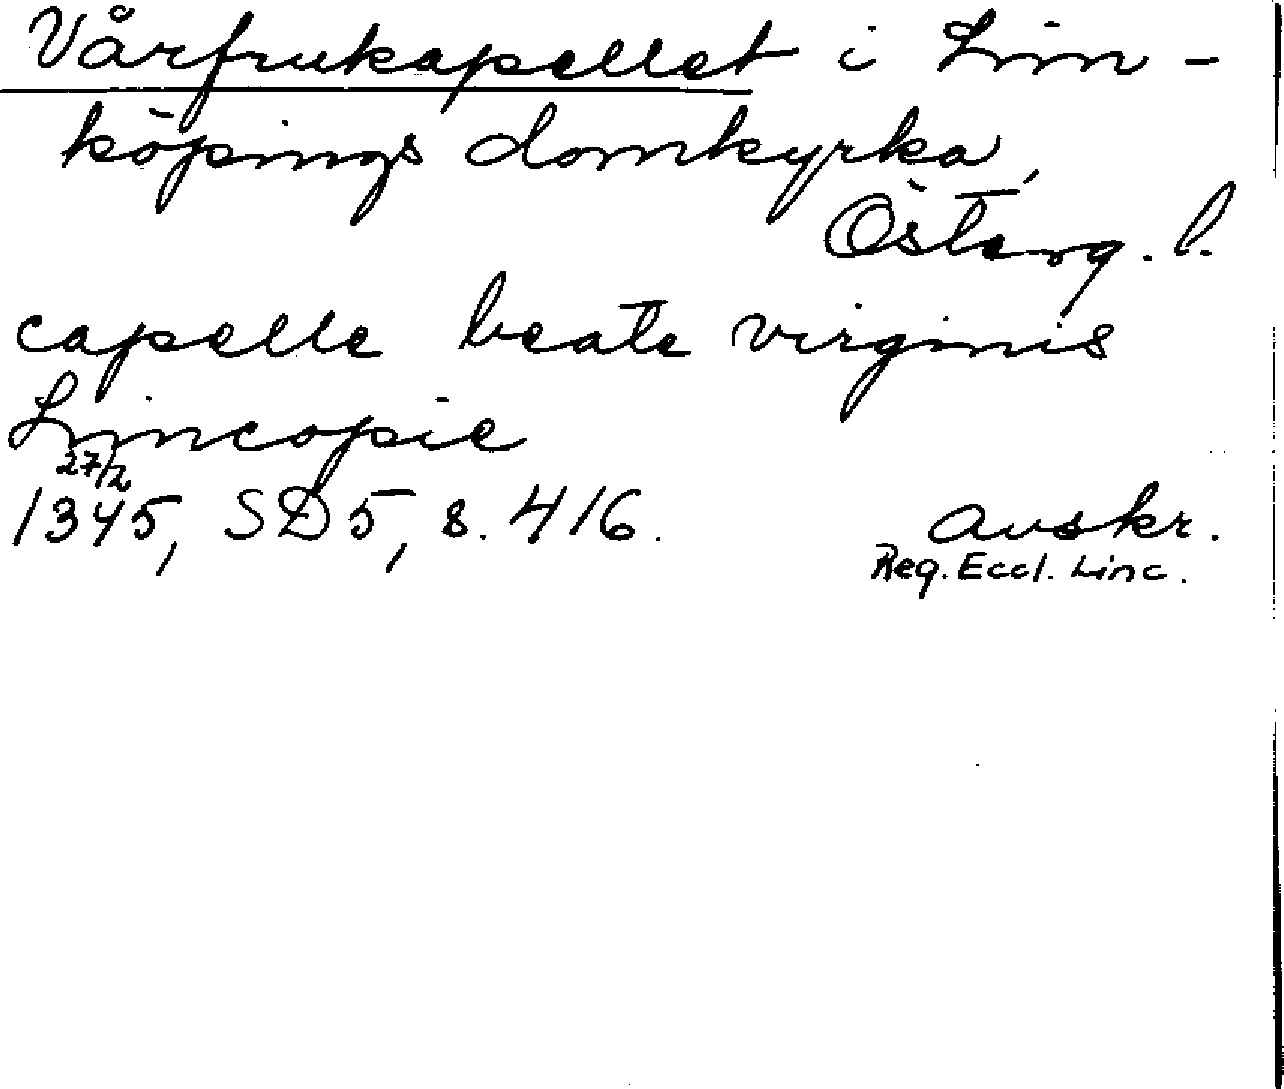 Vårfrukapellet i Lin-
köpings domkyrka,
Österg. l.
capelle beate virginis
Lincopie
27/2
1345, SD 5, s. 416. avskr.
Reg. Eccl. Linc.